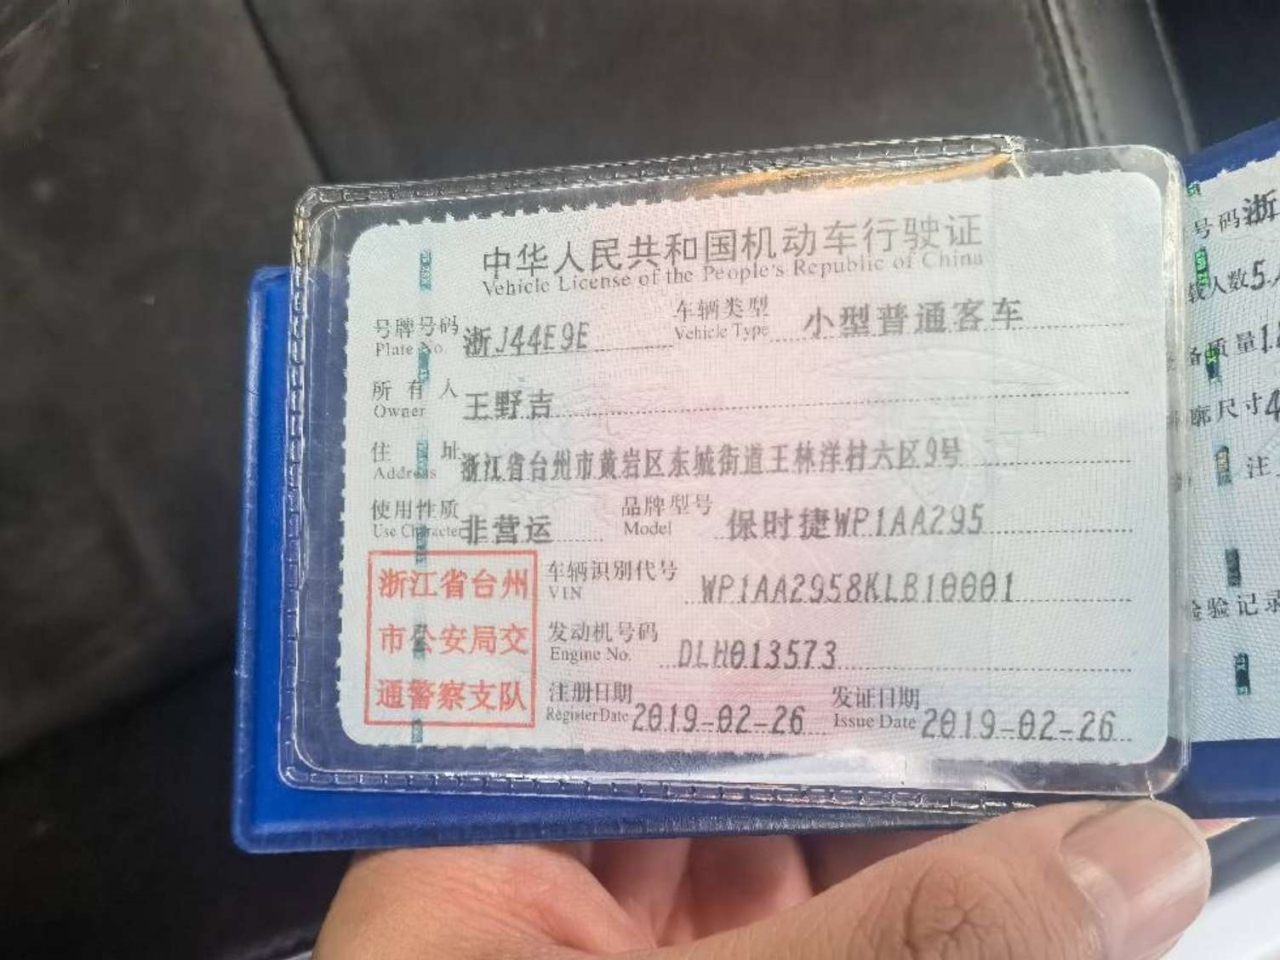 中华人民共和国机动车行驶证
Vehicle License of the People's Republic of China
号牌号码 浙J44E9E 车辆类型 小型普通客车
Plate No. Vehicle Type
所有人 王野吉
Owner
住址 浙江省台州市黄岩区东城街道王林洋村六区9号
Address
使用性质 非营运 品牌型号 保时捷WP1AA295
Use Character Model
浙江省台州
市公安局交
通警察支队
车辆识别代号 WP1AA2958KLB10001
VIN
发动机号码 DLH013573
Engine No.
注册日期 2019-02-26 发证日期 2019-02-26
Register Date Issue Date
号码 浙
载人数 5
备质量 1.
廓尺寸 4
注
检验记录